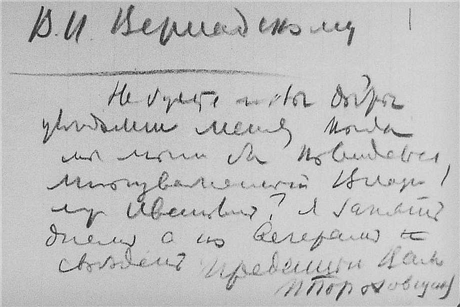 В.И. Вернадскому
Не будете ли Вы добры
уведомить меня, когда
мы могли бы повидаться,
многоуважаемый Влади
мир Иванович? Я занятый
днем, а по вечерам
свободен Преданный Вам